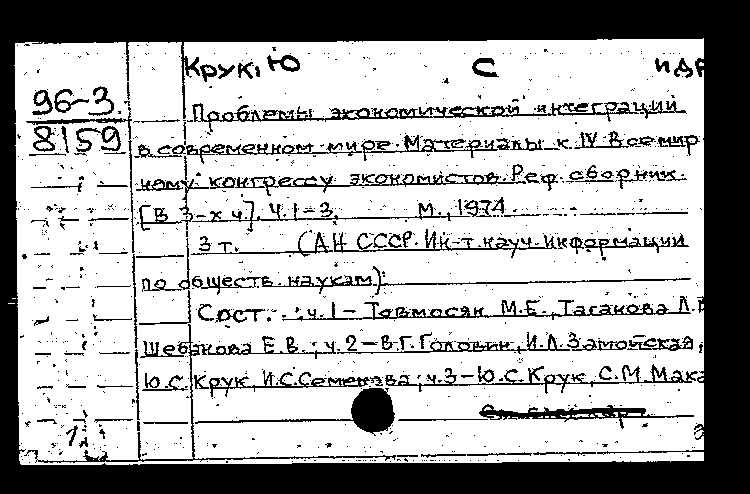 Крук, Ю С и др
96-3
8159
Проблемы экономической интеграции
в современном мире. Материалы к IV Всемир
ному конгрессу экономистов. Реф. сборник.
[В 3-х ч]. Ч.1-3. М., 1974
3 т. (АН СССР. Ин-т науч. информации
по обществ. наукам).
Сост.: ч.1 - Товмосян М.Е., Таганова Л.
Шебанова Е.В.; ч.2-В.Г.Головин, И.Л.Замойская,
Ю.С.Крук, И.С.Семенова; ч.3-Ю.С.Крук, С.М.Мака